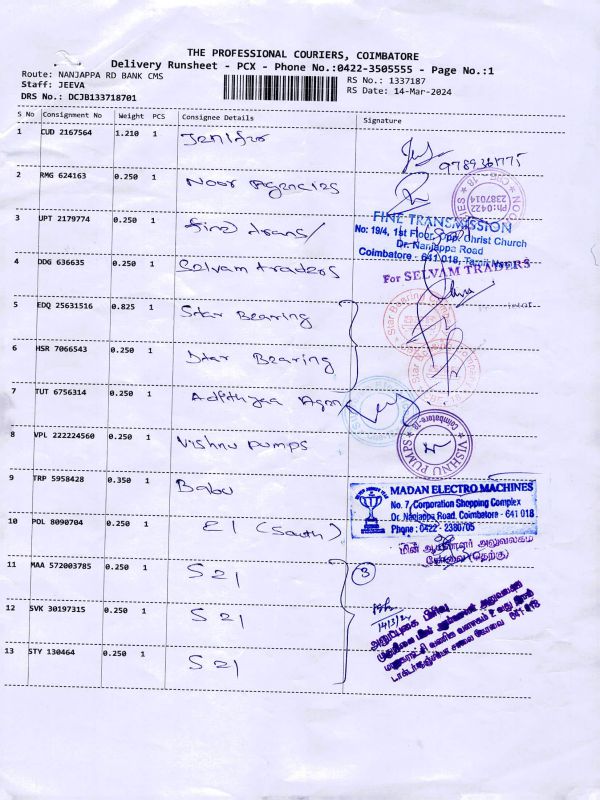 THE PROFESSIONAL COURIERS, COIMBATORE
Delivery Runsheet - PCX - Phone No.:0422-3505555 - Page No.:1
Route: NANJAPPA RD BANK CMS
Staff: JEEVA
DRS No.: DCJB133718701
RS No.: 1337187
RS Date: 14-Mar-2024
S No Consignment No Weight PCS Consignee Details Signature
1 CUD 2167564 1.210 1 Jenifur
9789361775
2 RMG 624163 0.250 1 Noor Agencies
Ph:0422
2387014
3 UPT 2179774 0.250 1 fine trans/
FINE TRANSMISSION
No: 19/4, 1st Floor, Opp. Christ Church
Dr. Nanjappa Road
Coimbatore - 641 018,
4 DDG 636635 0.250 1 Selvam traders
For SELVAM TRADERS
5 EDQ 25631516 0.825 1 Star Bearing
6 HSR 7066543 0.250 1 Star Bearing
7 TUT 6756314 0.250 1
8 VPL 222224560 0.250 1 Vishnu Pumps
VISHNU PUMPS
Coimbatore-18
9 TRP 5958428 0.350 1 Babu
MADAN ELECTRO MACHINES
No. 7, Corporation Shopping Complex
Dr. Nanjappa Road, Coimbatore - 641 018
Phone : 0422 - 2380705
10 POL 8090704 0.250 1 E1 (South)
மின் ஆய்வாளர் அலுவலகம்
கோவை (தெற்கு)
11 MAA 572003785 0.250 1 S 21
3
12 SVK 30197315 0.250 1 S 21
13 STY 130464 0.250 1 S 21
641 018